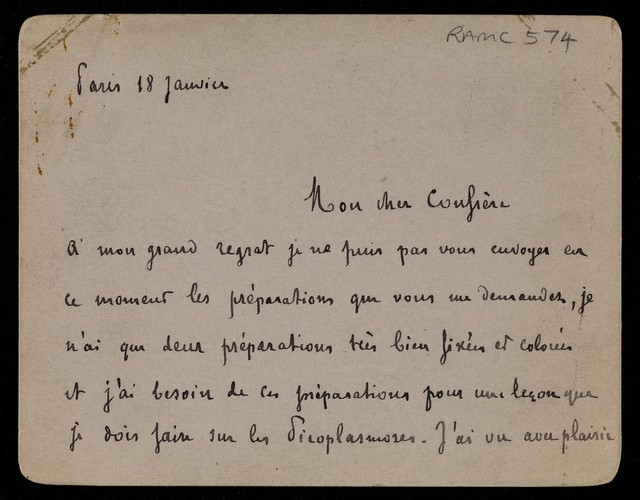 RAMC 574
Paris 18 Janvier
Mon cher Confrère
A mon grand regret je ne puis pas vous envoyer en
ce moment les préparations que vous me demandez, je
n'ai que deux préparations très bien fixées et colorées
et j'ai besoin de ces préparations pour une leçon que
je dois faire sur les Piroplasmoses. J'ai vu avec plaisir